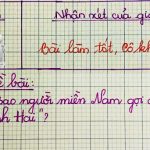 Nhận xét của gi
Bài làm tốt, Có kh
ề bài:
sao người miền Nam gọi c
nh Hai"?